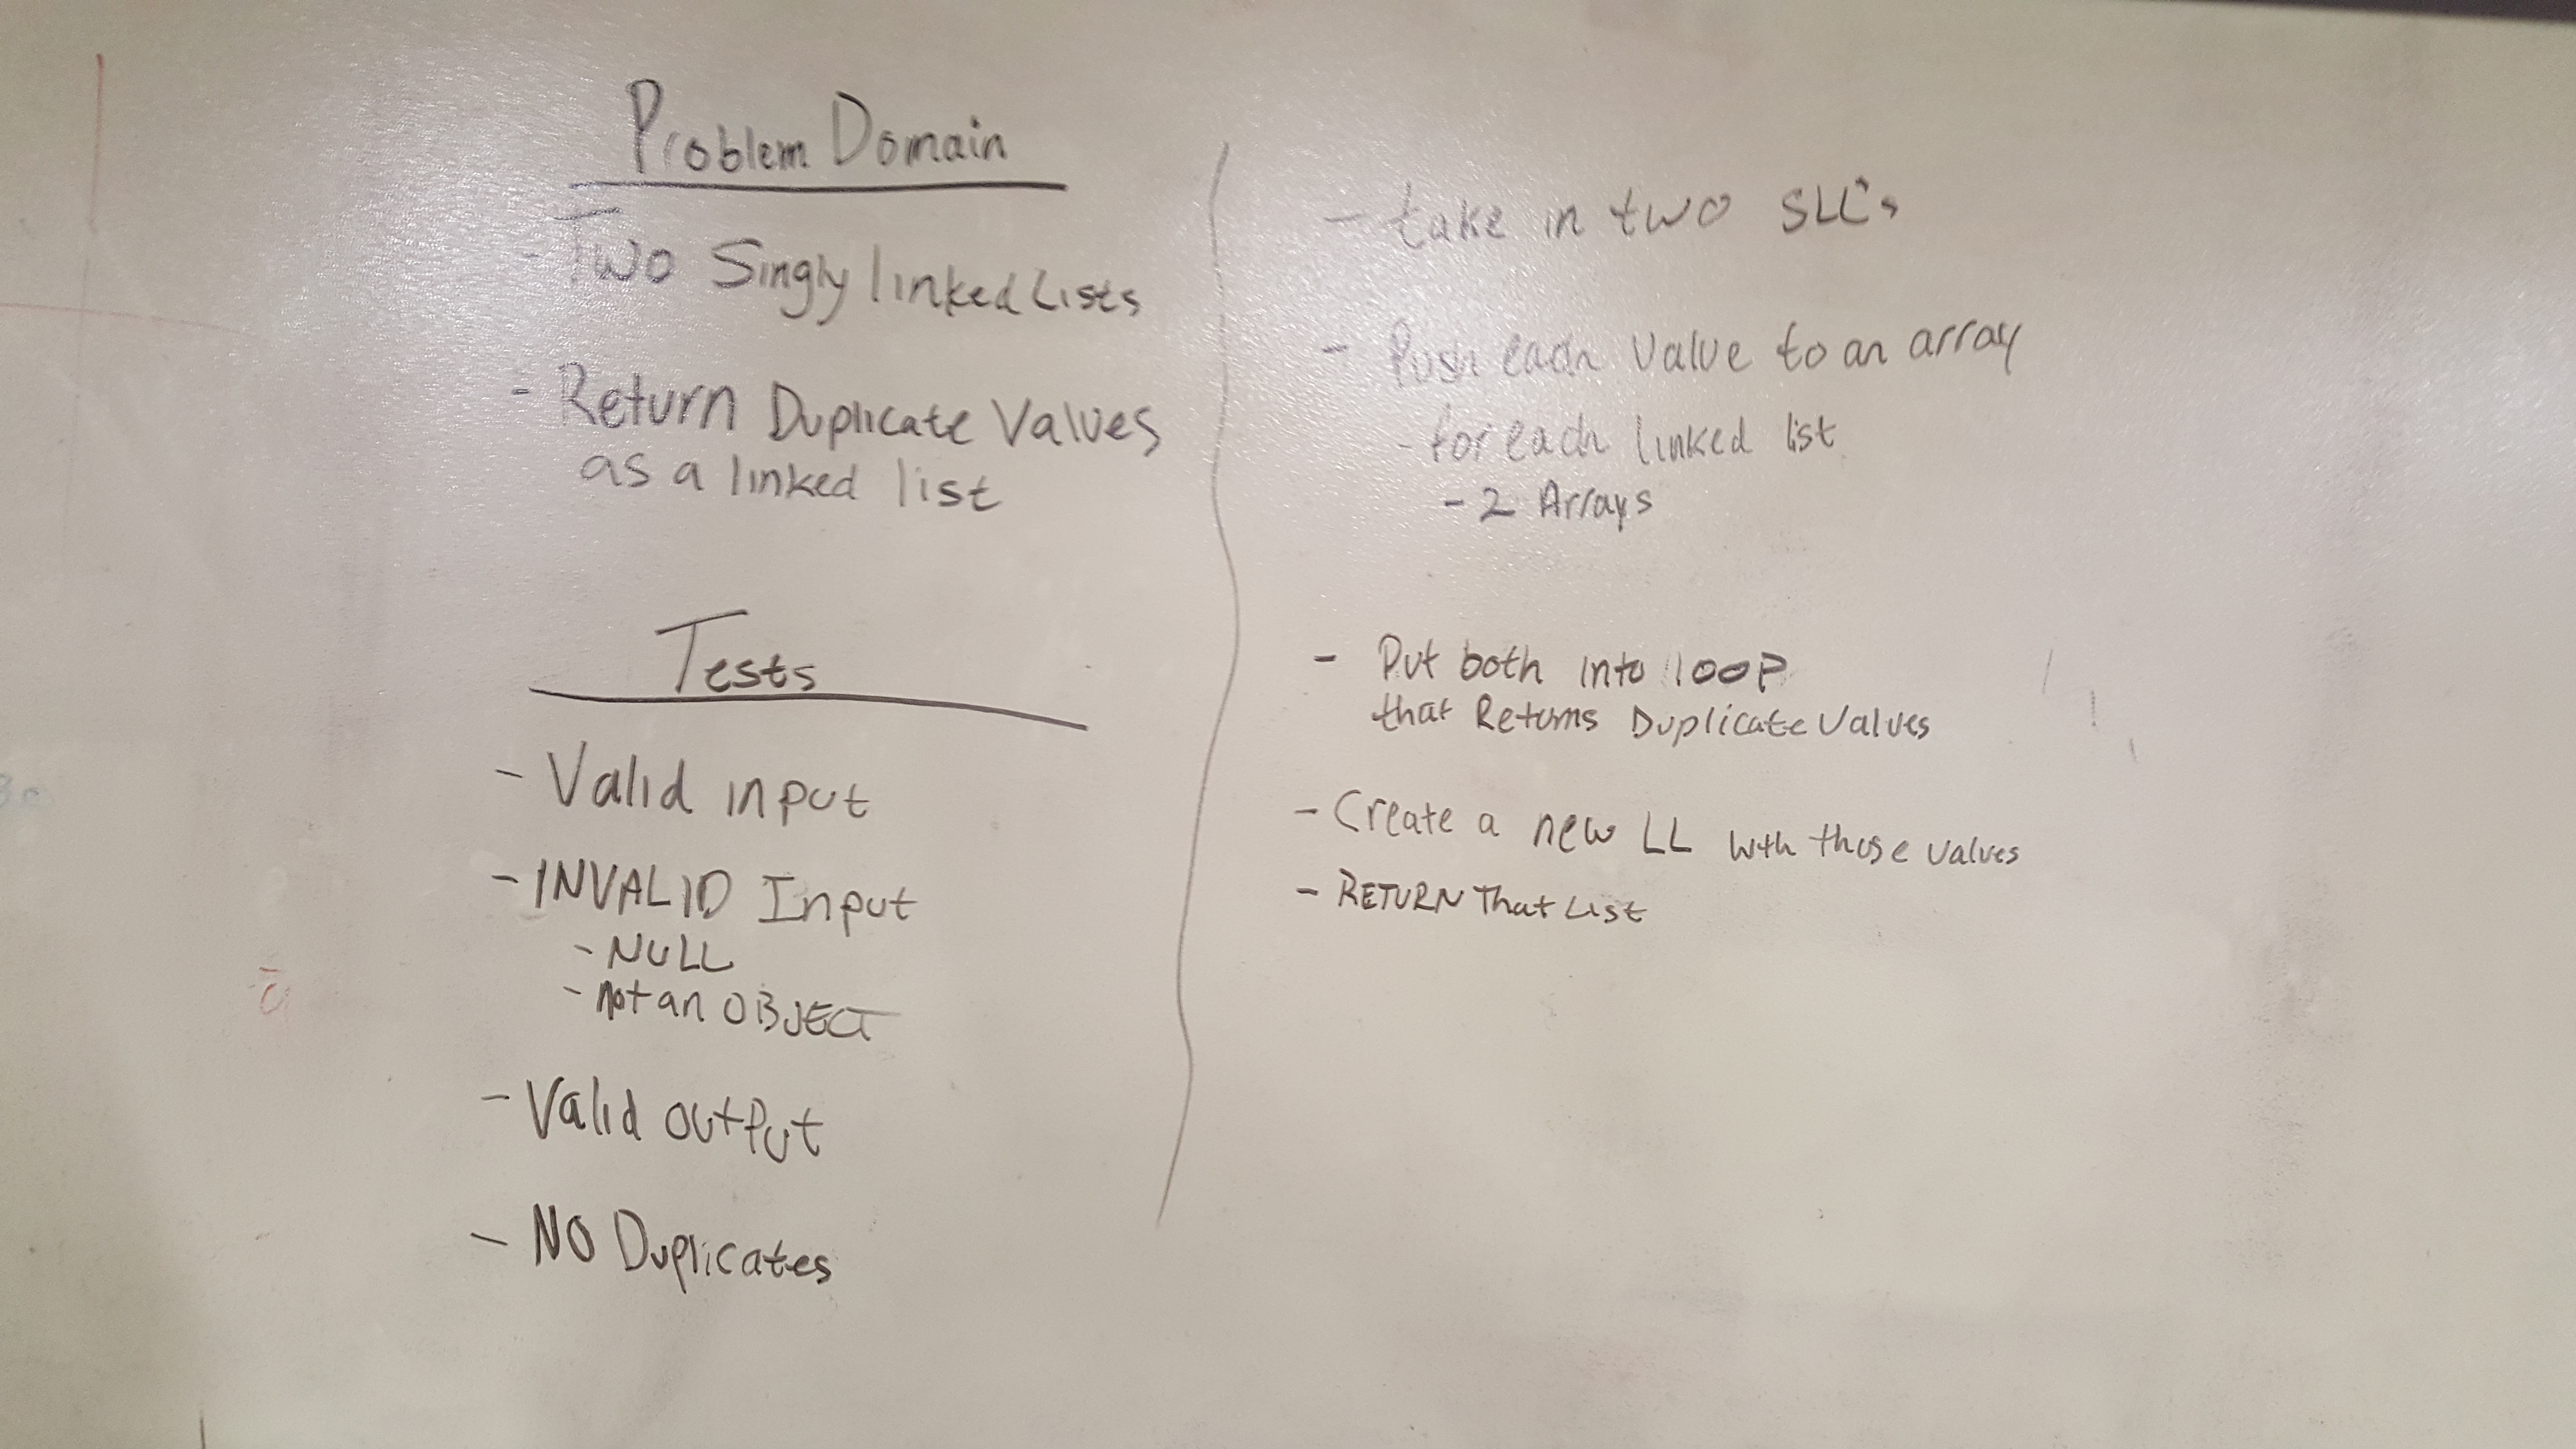 Problem Domain
- Two Singly linked Lists
- Return Duplicate Values
as a linked list
Tests
- Valid input
- INVALID Input
- NULL
- not an OBJECT
- Valid output
- NO Duplicates
- take in two SLL's
- Push each value to an array
- for each linked list
- 2 Arrays
- Put both into loop
that Returns Duplicate Values
- Create a new LL with those values
- RETURN That List